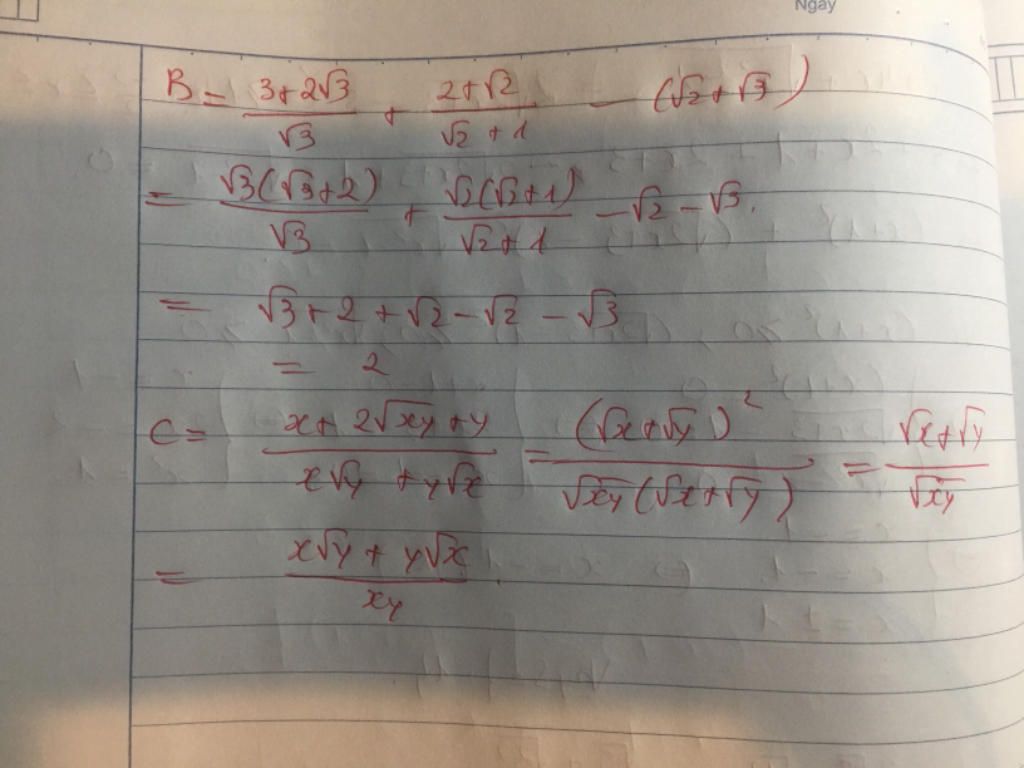 Ngày
B = (3+2√3)/√3 + (2+√2)/(√2+1) - (√2+√3)
= √3(√3+2)/√3 + √2(√2+1)/(√2+1) - √2 - √3.
= √3+2+√2-√2-√3
= 2
C = (x+2√xy+y)/(x√y+y√x) = (√x+√y)²/(√xy(√x+√y)) = (√x+√y)/√xy
= (x√y+y√x)/xy.